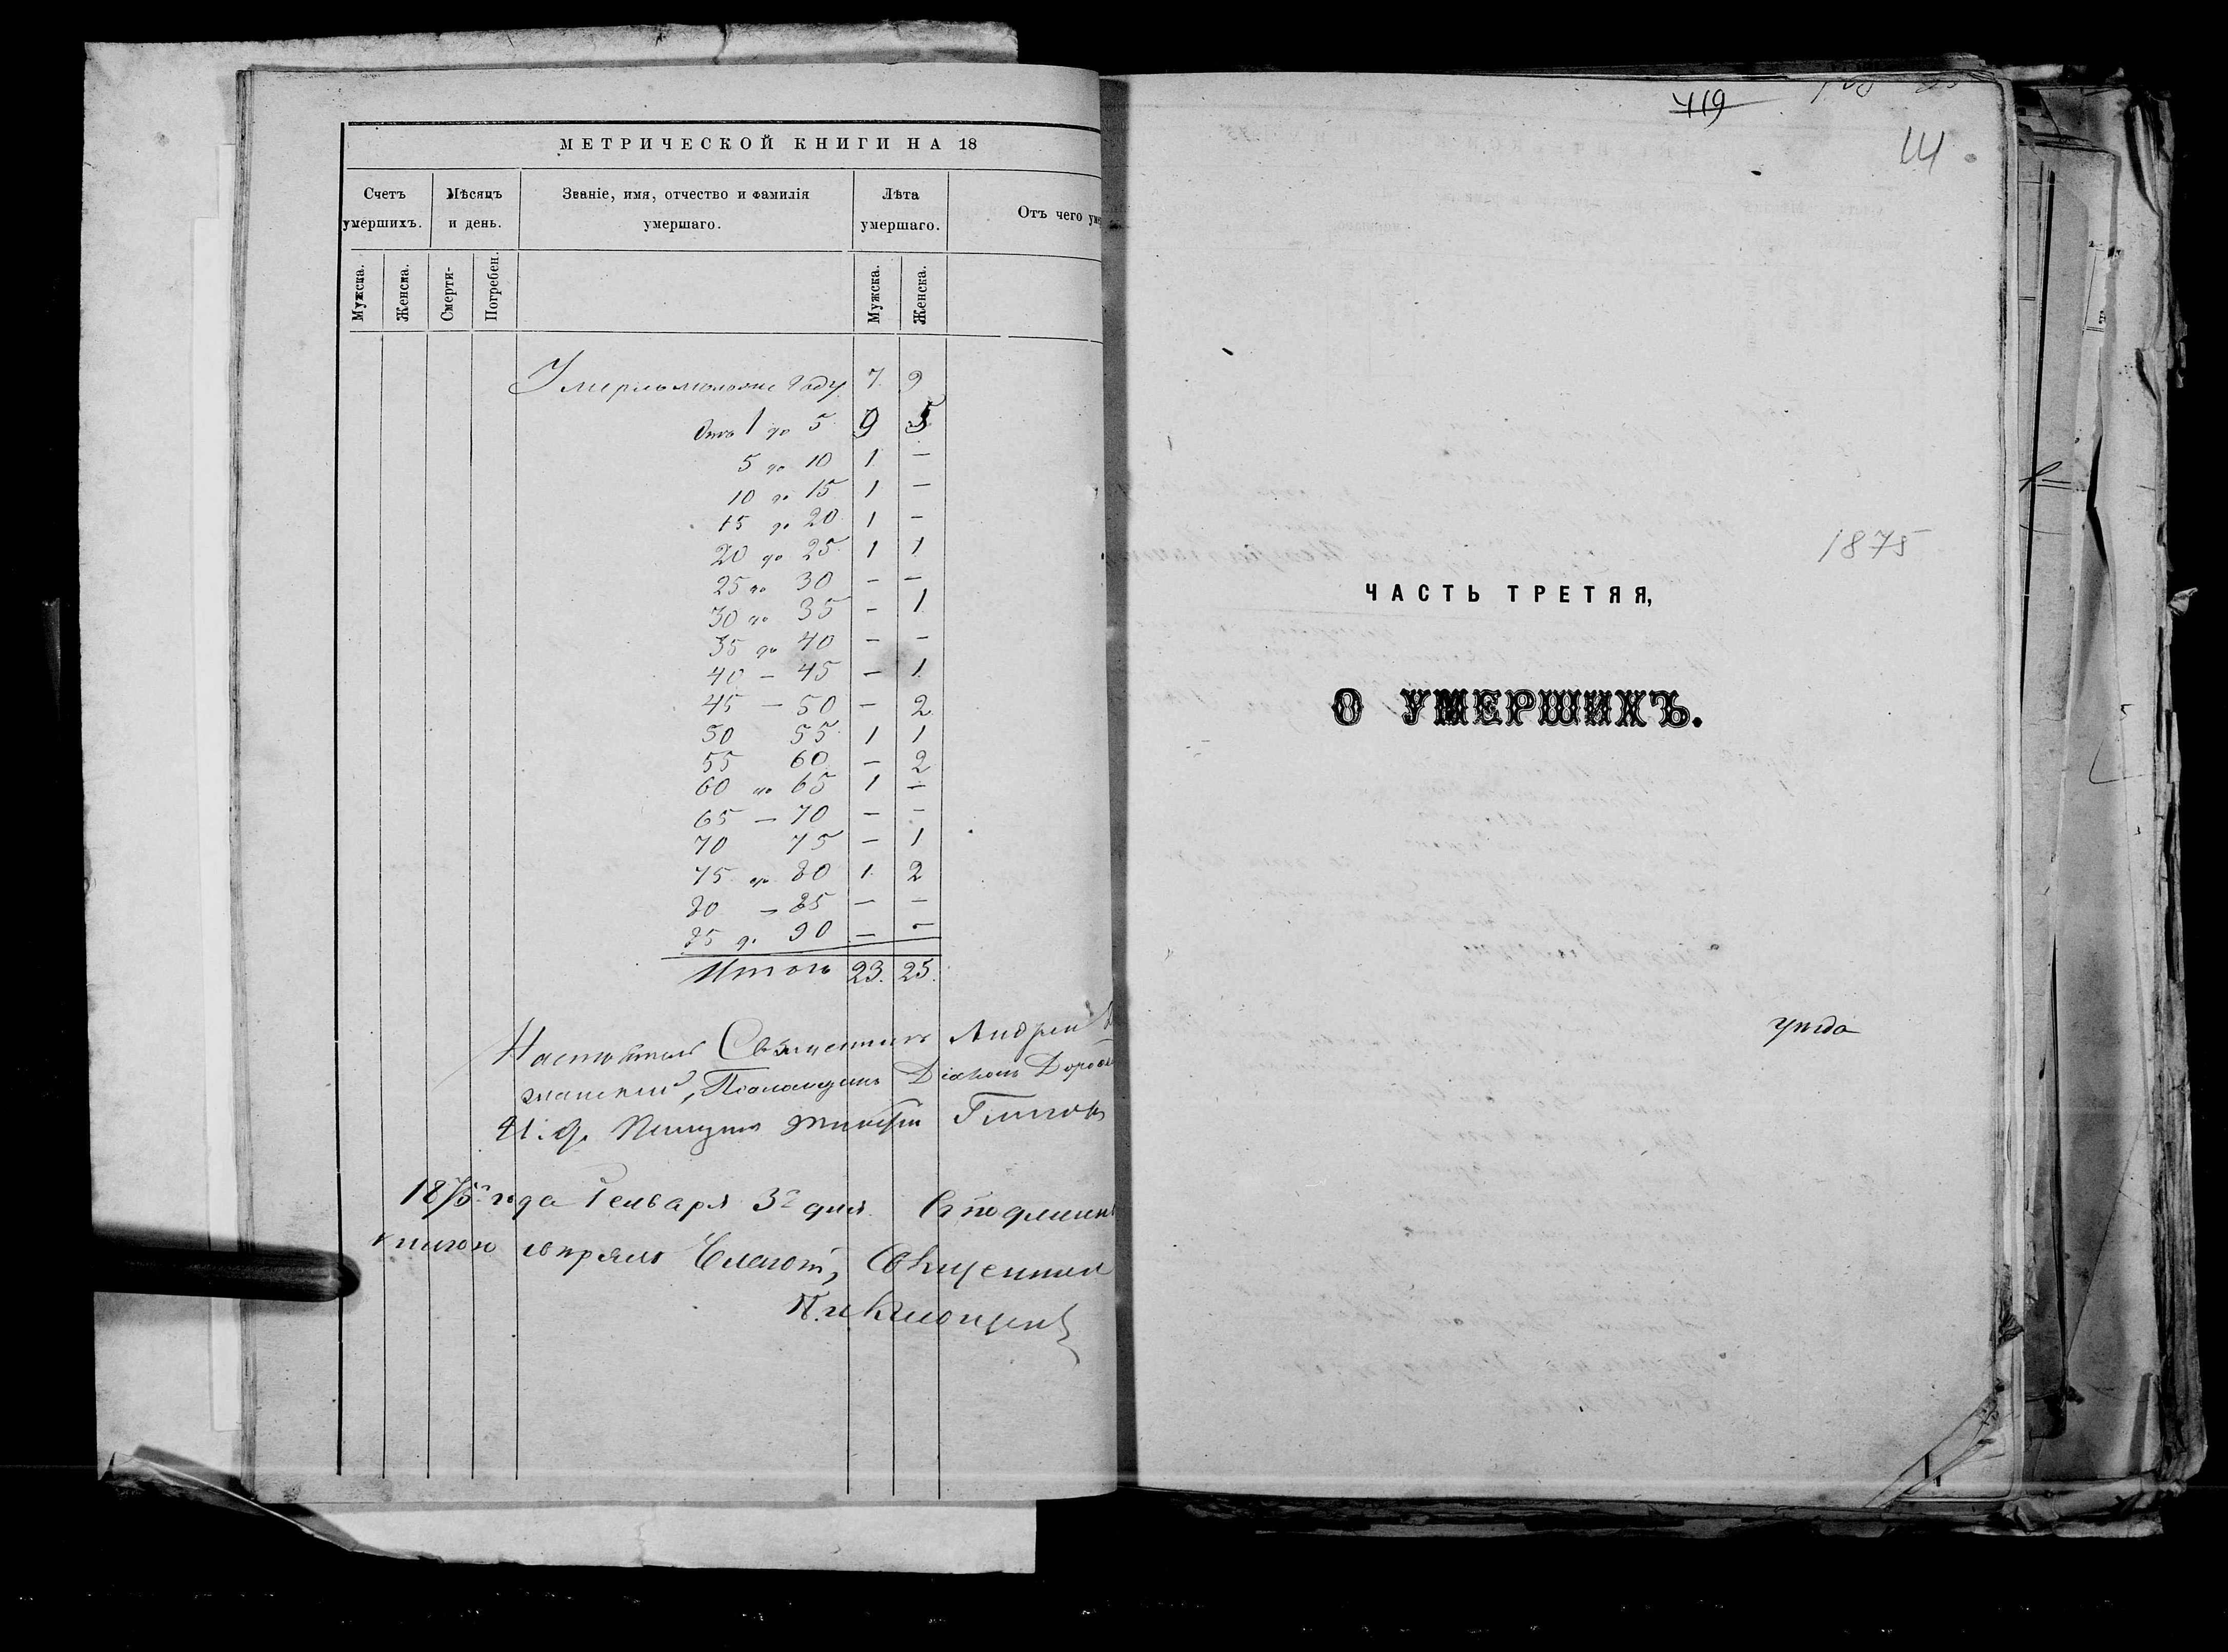 МЕТРИЧЕСКОЙ КНИГИ НА 18
Счетъ умершихъ. Мѣсяцъ и день. Званіе, имя, отчество и фамилія умершаго. Лѣта умершаго. Отъ чего
Мужска. Женска. Смерти- Погребен. Мужска. Женска.
Умерло моложе году 7. 9
Отъ 1 до 5 9 5
5 до 10 1 —
10 до 15 1 —
15 до 20 1 —
20 до 25 1 1
25 до 30 — —
30 до 35 — 1
35 до 40 — —
40 — 45 — 1
45 — 50 — 2
50 55 1 1
55 60 — 2
60 до 65 1 —
65 — 70 — —
70 75 — 1
75 до 80 1 2
80 — 85 — —
85 до 90 — —
Итого 23. 25.
Настоятель Священникъ Андрей
Псаломщикъ Діаконъ
И. д.
1875 года Генваря 3 дня.
книгою
419
14
1875
ЧАСТЬ ТРЕТЯЯ,
О УМЕРШИХЪ.
уѣзда